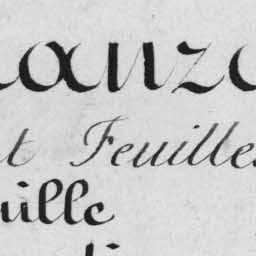 anz
t Feuilles
uille